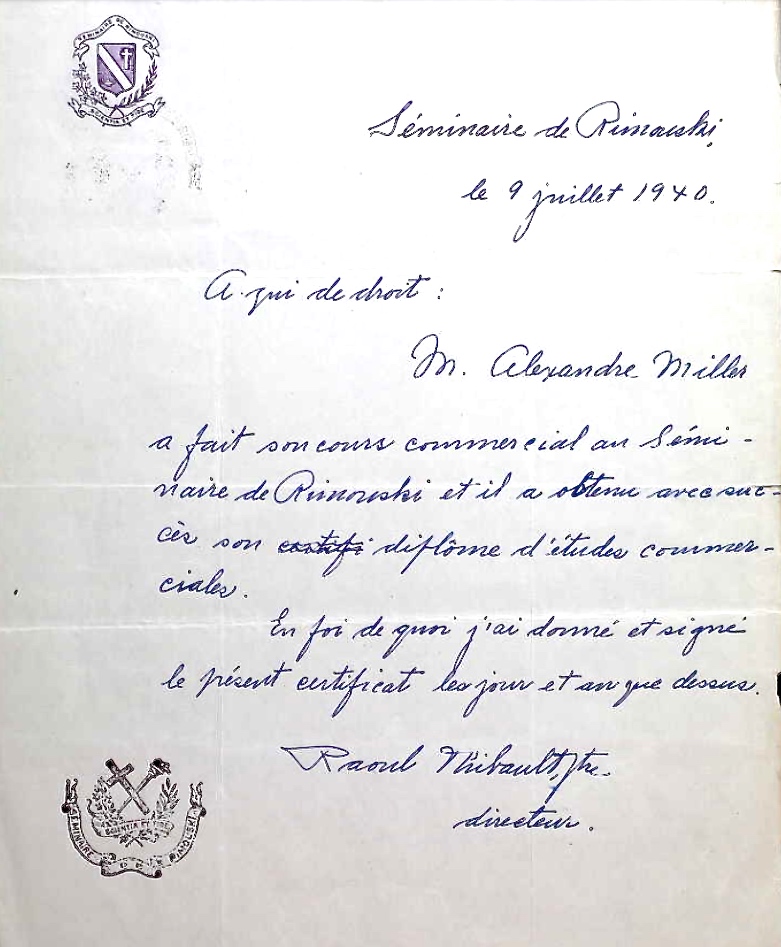 SEMINAIRE DE RIMOUSKI
SCIENTIA ET FIDE
Séminaire de Rimouski,
le 9 juillet 1940.
A qui de droit :
M. Alexandre Miller
a fait son cours commercial au Sémi-
naire de Rimouski et il a obtenu avec suc-
cès son certifi diplôme d'études commer-
ciales.
En foi de quoi j'ai donné et signé
le présent certificat les jour et an que dessus.
Raoul Thibault, ptre.
directeur.
SCIENTIA ET FIDE
SEMINAIRE DE RIMOUSKI